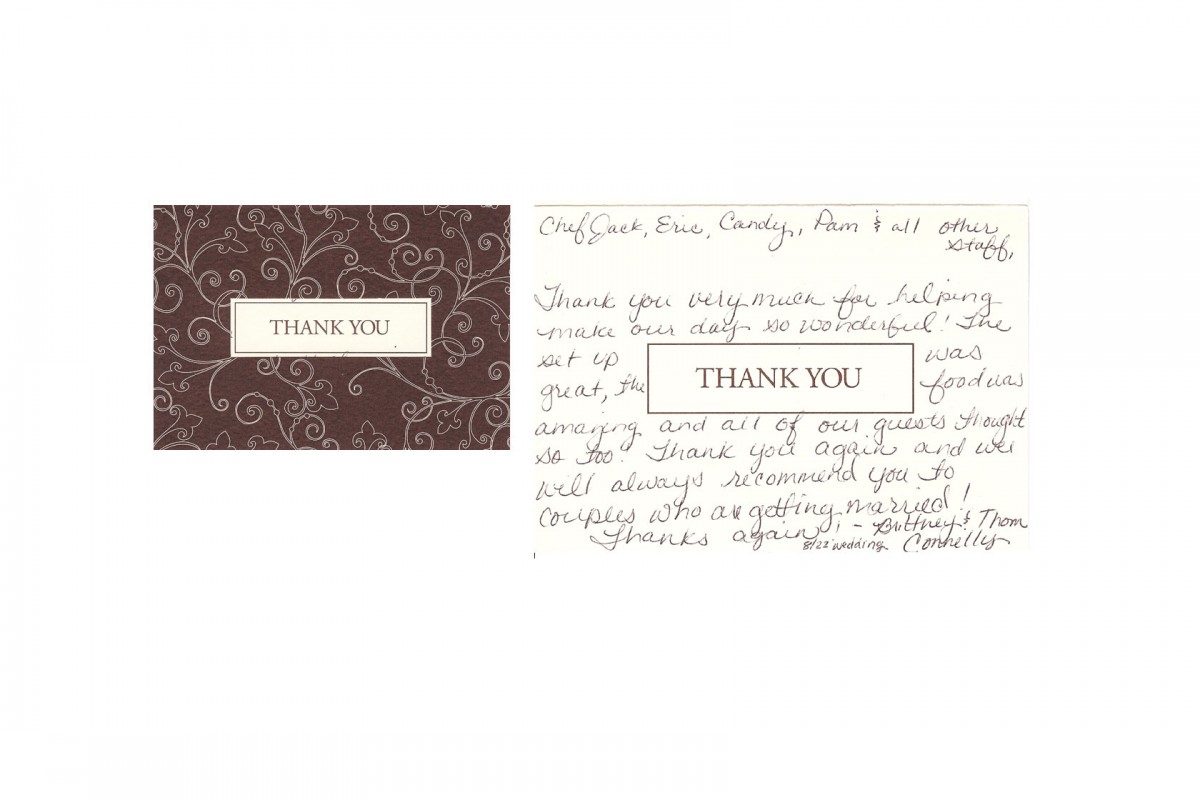 THANK YOU
Chef Jack, Eric, Candy, Pam & all other
staff,
Thank you very much for helping
make our day so wonderful! The
set up was
great, the food was
THANK YOU
amazing and all of our guests thought
so too! Thank you again and we
will always recommend you to
couples who are getting married!
Thanks again! - Brittney & Thom
8/22 wedding Connelly